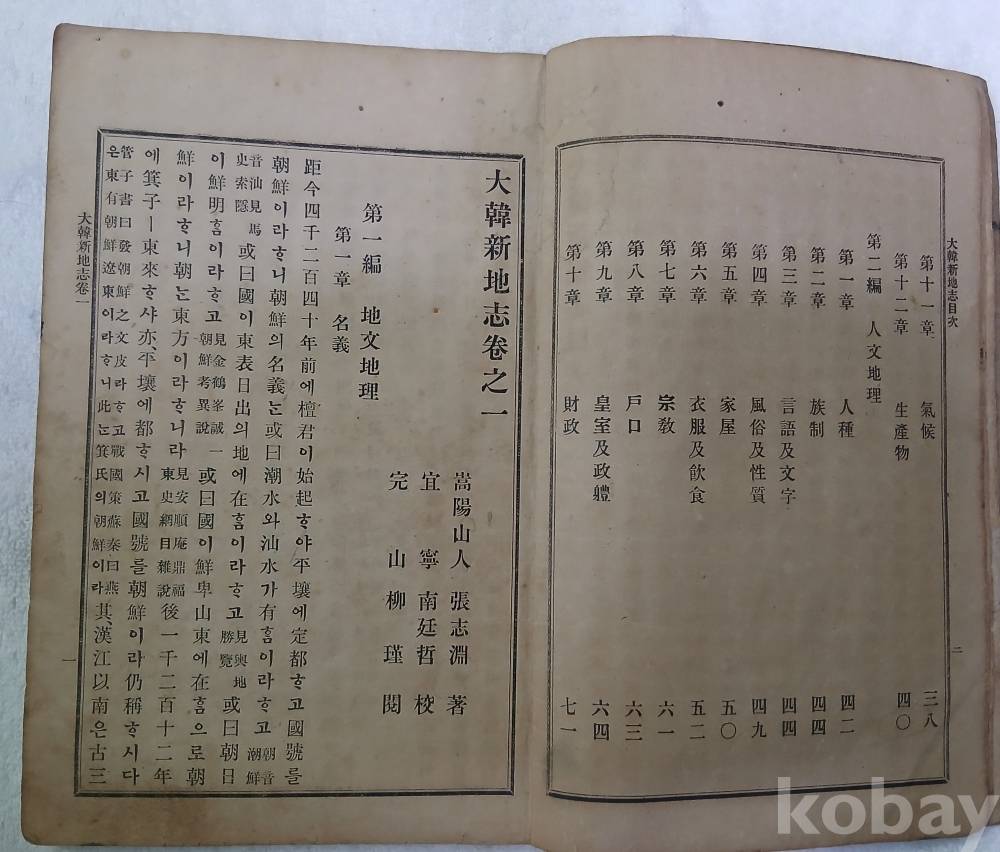 大韓新地志目次
第十一章 氣候 三八
第十二章 生產物 四〇
第二編 人文地理
第一章 人種 四二
第二章 族制 四四
第三章 言語及文字 四四
第四章 風俗及性質 四九
第五章 家屋 五〇
第六章 衣服及飮食 五二
第七章 宗敎 六一
第八章 戶口 六三
第九章 皇室及政軆 六四
第十章 財政 七一
二
大韓新地志卷之一
嵩陽山人 張志淵 著
宜寧 南廷哲 校
完山 柳瑾 閱
第一編 地文地理
第一章 名義
距今四千二百四十年前에檀君이始起ᄒᆞ야平壤에定都ᄒᆞ고國號를
朝鮮이라ᄒᆞ니朝鮮의名義ᄂᆞᆫ或曰潮水와汕水가有ᄒᆞᆷ이라ᄒᆞ고朝音潮鮮
音汕見馬史索隱或曰國이東表日出의地에在ᄒᆞᆷ이라ᄒᆞ고見輿地勝覽或曰朝日
이鮮明ᄒᆞᆷ이라ᄒᆞ고見金鶴峯誠一朝鮮考異說或曰國이鮮卑山東에在ᄒᆞᆷ으로朝
鮮이라ᄒᆞ니朝ᄂᆞᆫ東方이라ᄒᆞ니라見安順庵鼎福東史綱目雜說後一千二百十二年
에箕子ㅣ東來ᄒᆞ샤亦、平壤에都ᄒᆞ시고國號를朝鮮이라仍稱ᄒᆞ시다
管子書曰發朝鮮之文皮라ᄒᆞ고戰國策蘇秦曰燕은東有朝鮮遼東이라ᄒᆞ니此ᄂᆞᆫ箕氏의朝鮮이라其、漢江以南은古三
大韓新地志卷一
一
kobay